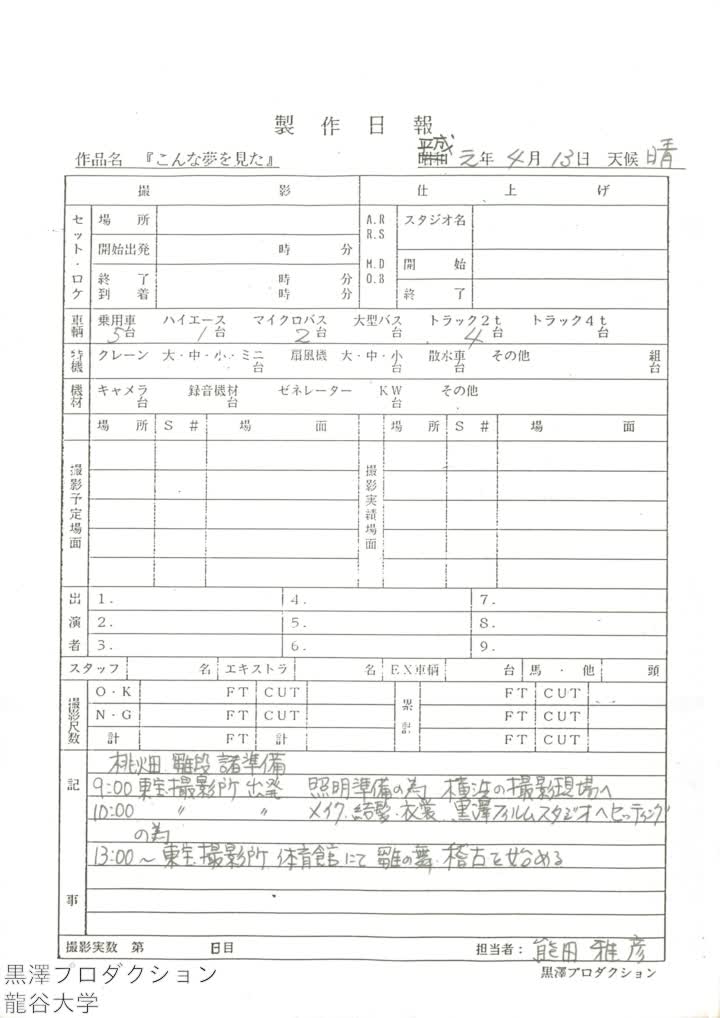 製作日報
作品名 『こんな夢を見た』 昭和 平成 元年 4月 13日 天候 晴
撮影 仕上げ
セット・ロケ 場所 A.R R.S スタジオ名
開始出発 時 分 M.D O.B 開始
終了 時 分 終了
到着 時 分
車輌 乗用車 5台 ハイエース 1台 マイクロバス 2台 大型バス 台 トラック2t 4台 トラック4t 台
特機 クレーン 大・中・小・ミニ 台 扇風機 大・中・小 台 散水車 台 その他 組 台
機材 キャメラ 台 録音機材 台 ゼネレーター KW 台 その他
場所 S# 場面 場所 S# 場面
撮影予定場面 撮影実績場面
出演者 1. 4. 7.
2. 5. 8.
3. 6. 9.
スタッフ 名 エキストラ 名 EX車輌 台 馬・他 頭
撮影尺数 O・K FT CUT 累計 FT CUT
N・G FT CUT FT CUT
計 FT 計 FT CUT
記事
桃畑 雛段 諸準備
9:00 東宝撮影所 出発 照明準備の為 横浜の撮影現場へ
10:00 〃 〃 メイク.結髪.衣裳 黒澤フィルムスタジオへセッティング
の為
13:00〜 東宝撮影所 体育館にて 雛の舞.稽古を始める
撮影実数 第 日目 担当者: 熊田雅彦
黒澤プロダクション
黒澤プロダクション
龍谷大学